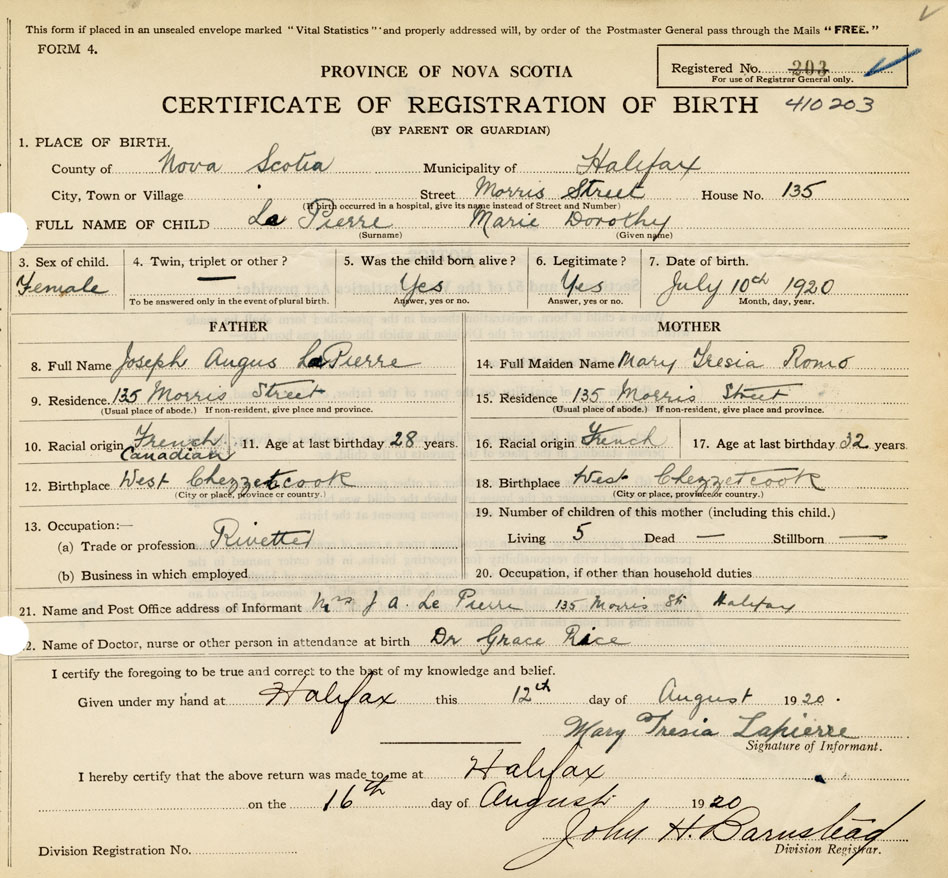 This form if placed in an unsealed envelope marked "Vital Statistics" and properly addressed will, by order of the Postmaster General pass through the Mails "FREE."
FORM 4.
Registered No. 203
For use of Registrar General only.
PROVINCE OF NOVA SCOTIA
CERTIFICATE OF REGISTRATION OF BIRTH 410203
(BY PARENT OR GUARDIAN)
1. PLACE OF BIRTH.
County of Nova Scotia Municipality of Halifax
City, Town or Village Street Morris Street House No. 135
(If birth occurred in a hospital, give its name instead of Street and Number)
FULL NAME OF CHILD La Pierre Marie Dorothy
(Surname) (Given name)
3. Sex of child. 4. Twin, triplet or other? 5. Was the child born alive? 6. Legitimate? 7. Date of birth.
Female — Yes Yes July 10th 1920
To be answered only in the event of plural birth. Answer, yes or no. Answer, yes or no. Month, day, year.
FATHER
8. Full Name Joseph Angus LaPierre
9. Residence. 135 Morris Street
(Usual place of abode.) If non-resident, give place and province.
10. Racial origin French Canadian 11. Age at last birthday 28 years.
12. Birthplace West Chezzetcook
(City or place, province or country.)
13. Occupation:—
(a) Trade or profession Rivetter
(b) Business in which employed
MOTHER
14. Full Maiden Name Mary Tresia Romo
15. Residence 135 Morris Street
(Usual place of abode.) If non-resident, give place and province.
16. Racial origin French 17. Age at last birthday 32 years.
18. Birthplace West Chezzetcook
(City or place, province or country.)
19. Number of children of this mother (including this child.)
Living 5 Dead — Stillborn —
20. Occupation, if other than household duties
21. Name and Post Office address of Informant Mrs J A. Le Pierre 135 Morris St. Halifax
2. Name of Doctor, nurse or other person in attendance at birth Dr Grace Rice
I certify the foregoing to be true and correct to the best of my knowledge and belief.
Given under my hand at Halifax this 12th day of August 1920.
Mary Tresia Lapierre
Signature of Informant.
I hereby certify that the above return was made to me at Halifax
on the 16th day of August 1920
John H. Barnstead
Division Registration No. Division Registrar.